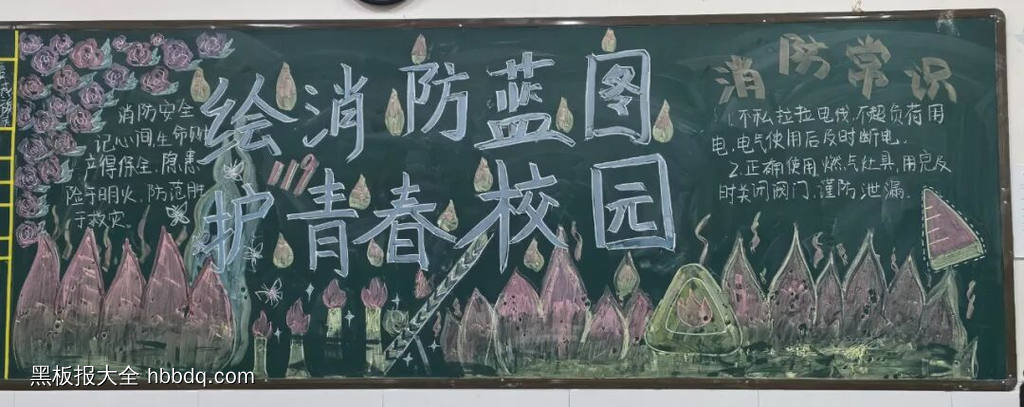 绘消防蓝图
护青春校园
119
消防安全
记心间,生命财
产得保全.隐患
险于明火,防范胜
于救灾.
消防常识
1.不私拉拉电线,不超负荷用
电,电气使用后及时断电.
2.正确使用燃气灶具,用完及
时关闭阀门,谨防泄漏.
黑板报大全 hbbdq.com